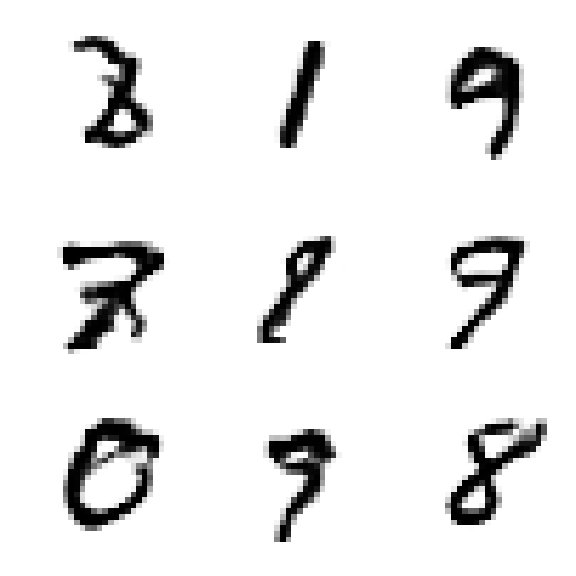 3 1 9
8 9
0 9 8